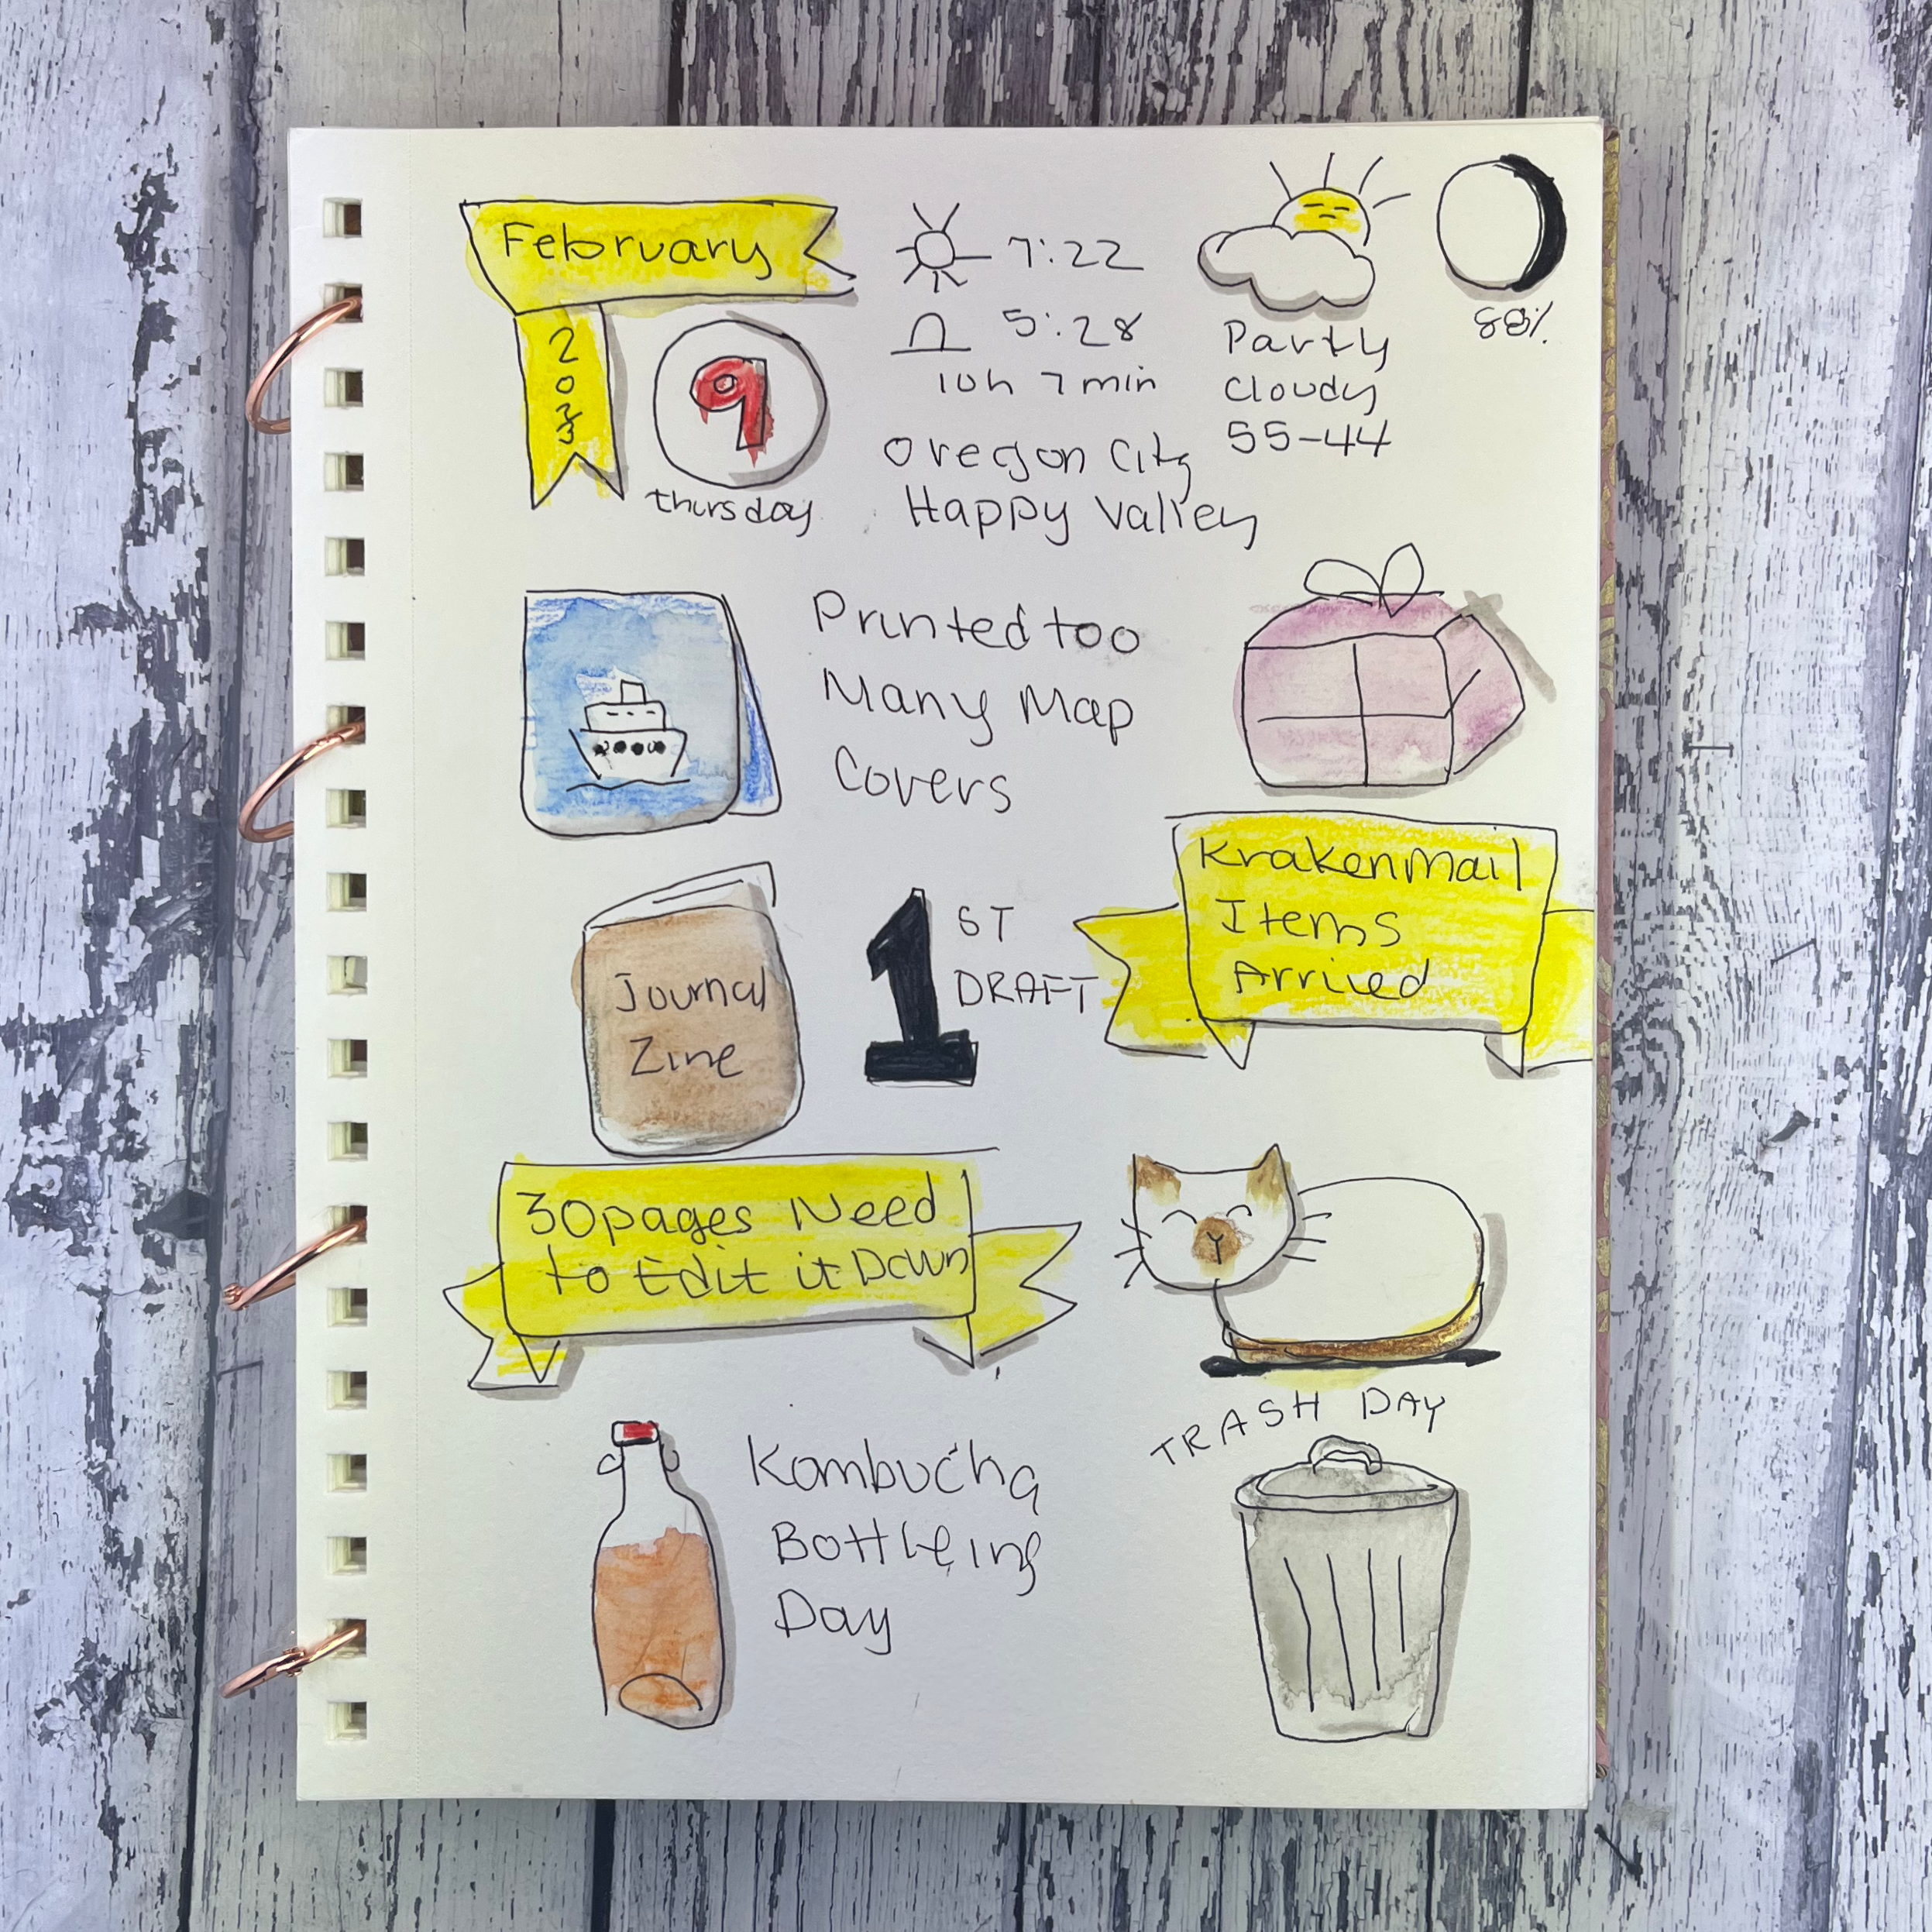 February
2
0
2
3
9
thursday
7:22
5:28
10h 7 min
Oregon City
Happy Valley
Partly
Cloudy
55-44
88%
Printed too
Many Map
Covers
KrakenMail
Items
Arrived
Journal
Zine
1 ST
DRAFT
30 pages Need
to Edit it Down
Kombucha
Bottleing
Day
TRASH DAY